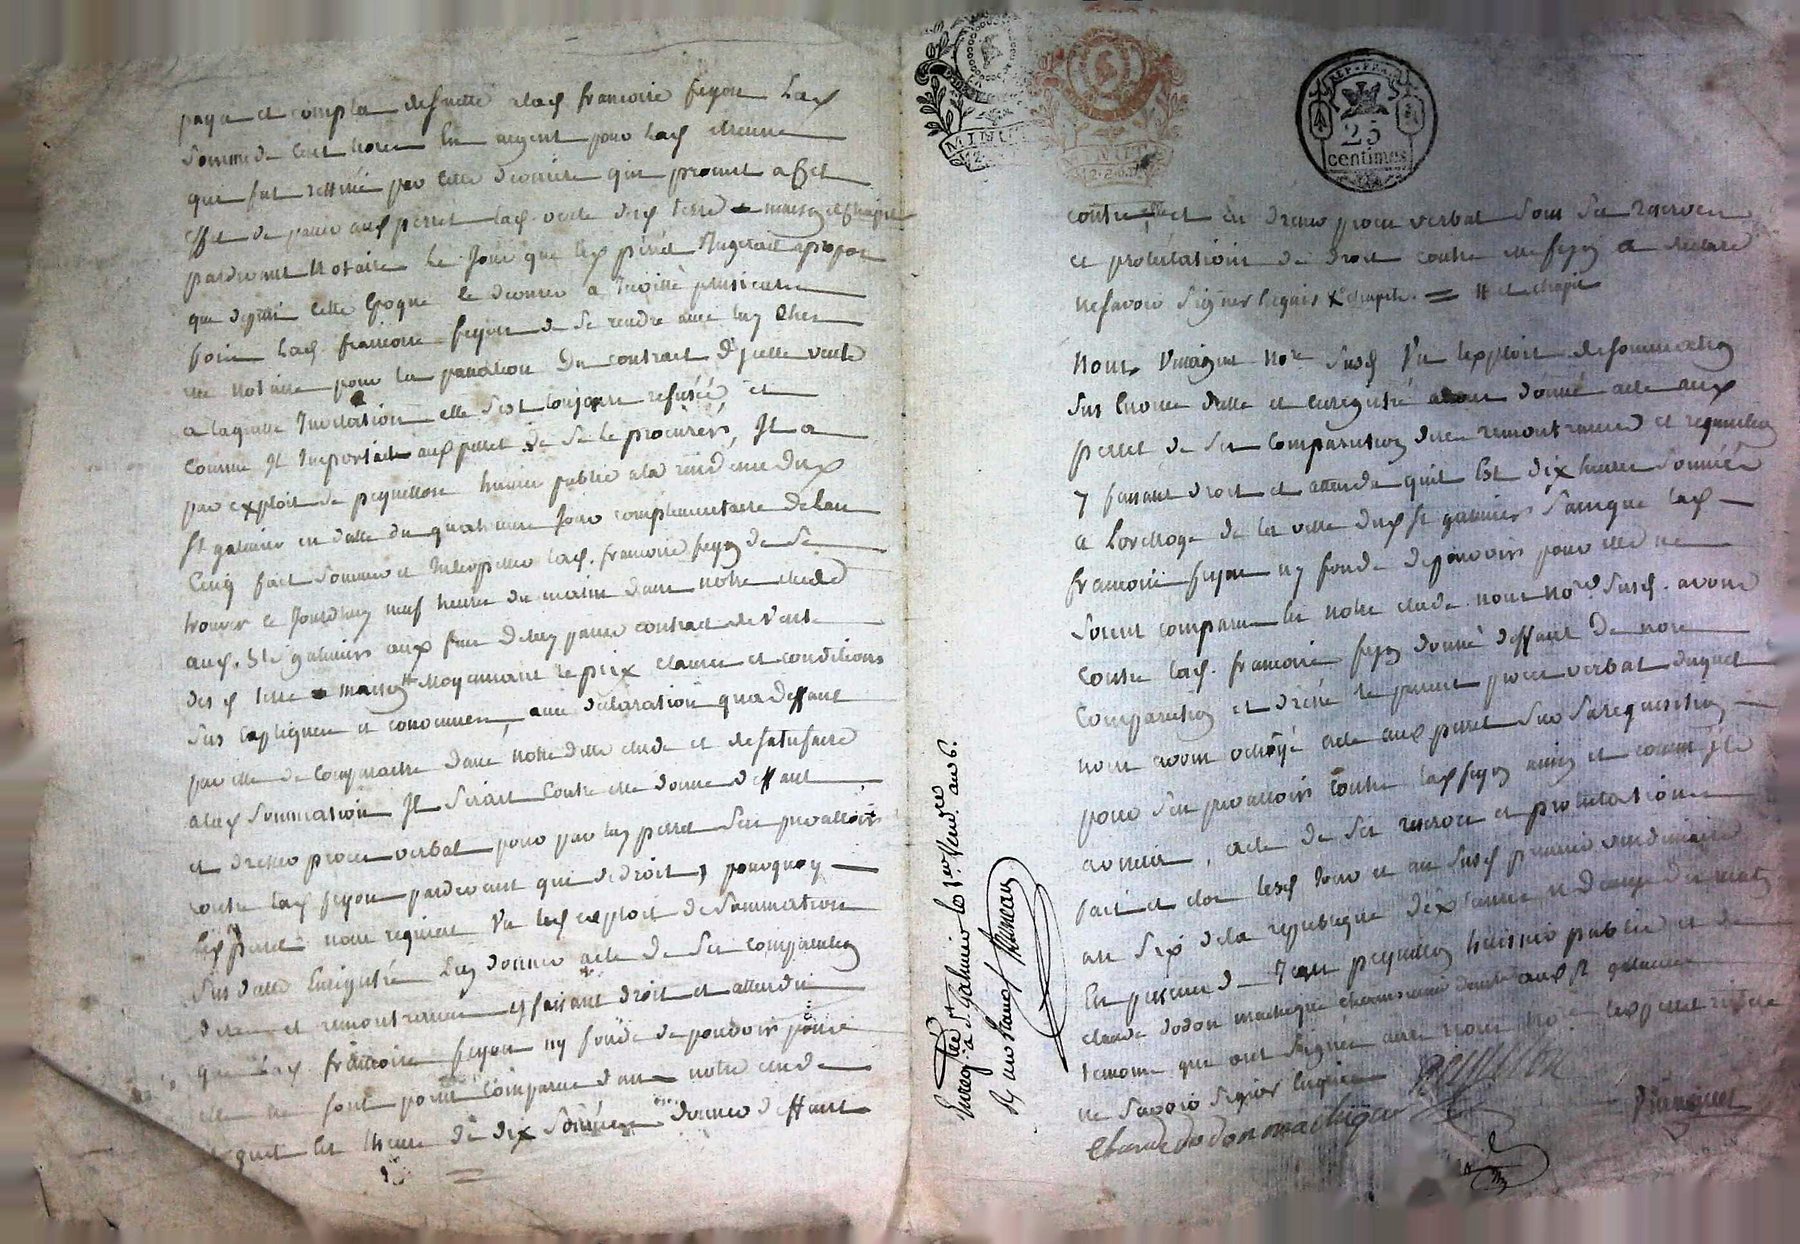 paya et compta de suitte a lad françoise feyou lad
somme de cent livres en argent pour lad etrenne
qui fut retirée par cette derniere qui promit a cet
effet de passer aud perret lad vente desd terre maison et chapit
pardevant notaire le jour que led perret jugerait apropos
que depuis cette époque le dernier a invitté plusieurs
fois lad. françoise feyou de se rendre avec luy chez
un notaire pour la passation du contrat d'ycelle vente
a laquelle invitation elle s'est toujours refusée, et
comme il importait aud perret de se le procurer, il a
par exploit de peyrellon huissier public a la residence dud
st galmier en datte du quatrieme jour complementaire de l'an
cinq fait sommer et interpeller lad. françoise feyou de se
trouver ce jourdhuy neuf heures du matin dans notre etude
aud. St galmier aux fins de luy passer contract de vente
desd terre maison moyennant le prix clauses et conditions
sus expliquées et convenues, avec déclaration qua deffaut
par elle de comparaitre dans notre ditte etude et de satisfaire
a lad sommation il serait contre elle donné deffaut
et dressé procès verbal pour par luy perret s'en prevalloir
contre lad feyou pardevant qui de droit, pourquoy
led perret nous requiert vu led exploit de sommation
sus datté enregistré luy donner acte de sa comparution
dires et remontrances y faisant droit et attendu
que lad françoise feyou ny fondé de pouvoir pour
elle ne sont point comparus dans notre etude
et quil est lheure de dix sonnées donner deffaut
MINUTE
MINUTE
REP. FRA.
25
centimes
contre elle et en dresser procès verbal sous ses reserves
et protestations de droit contre elle feyou a declaré
ne savoir signer requis et chapit
Nous notre susd vu l'exploit de sommation
sus enoncé datté et enregistré avons donné acte aud
perret de sa comparution dires remontrances et requisition
y faisant droit et attendu quil est dix heures sonnées
a l'orelloge de la ville dud st galmier sans que lad
françoise feyou ny fondé de pouvoir pour elle ne
soient comparus en notre etude nous nore susd. avons
contre lad. françoise feyou donné deffaut de non
comparution et dressé le present procès verbal duquel
nous avons octroyé acte aud perret sur sa requisition
pour s'en prevalloir contre lad feyou ainsi et comme il
avisera, acte de ses reserves et protestations
fait et clos lesd jour et an susd premier vendemiaire
an six de la republique dix heures et demye du matin
en presence de Jean peyrellon huissier public et de
claude dodon machique demeurants aud st galmier
temoins que ont signés avec nous nore led perret
ne savoir signer enquis
Enregistré à St galmier le 1er Vendre an 6.
Claude dodon machique